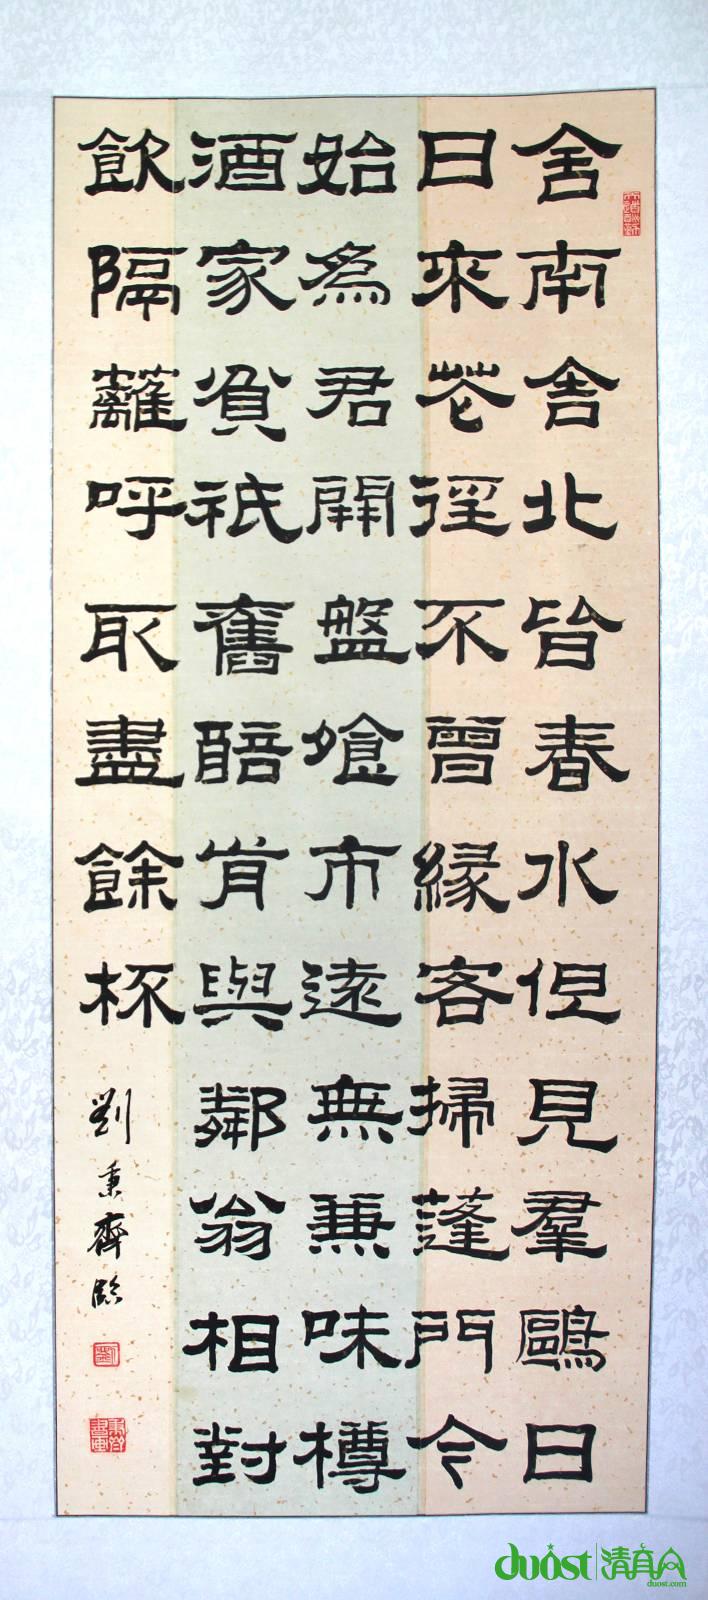 舍南舍北皆春水但見羣鷗日
日來花徑不曾緣客掃蓬門今
始為君開盤飧市遠無兼味樽
酒家貧祇舊醅肯與鄰翁相對
飲隔籬呼取盡餘杯
劉秉齊
duost 清真
duost.com